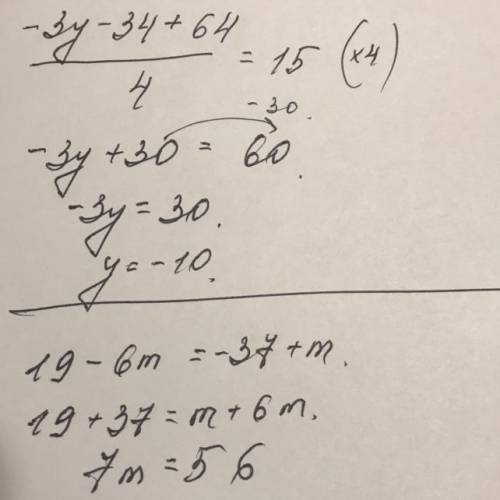 -3y-34+64
4
= 15 (×4)
-30.
-3y+30 = 60.
-3y = 30.
y = -10.
19-6m = -37+m.
19+37 = m+6m.
7m = 56